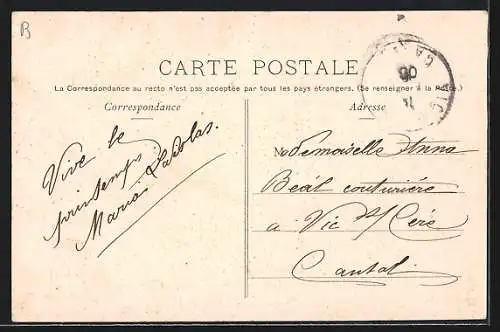 B
CARTE POSTALE
La Correspondance au recto n'est pas acceptée par tous les pays étrangers. (Se renseigner à la Poste.)
Correspondance
Adresse
Vive le
printemps.
Maria
Mademoiselle Anna
Beál couturière
a Vic s/ Cère
Cantal